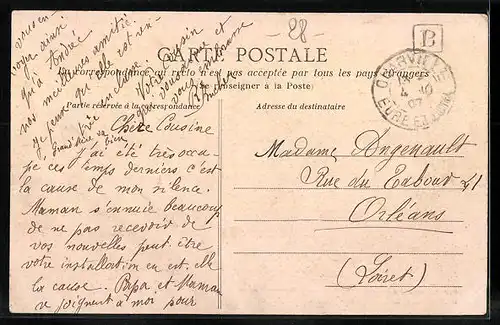 28
B
CARTE POSTALE
La correspondance au recto n'est pas acceptée par tous les pays étrangers
(Se renseigner à la Poste)
Partie réservée à la correspondance
Adresse du destinataire
CHARVILLE
4 10
07
EURE ET LOIR
Chère Cousine
J'ai été très occu-
pé ces temps derniers c'est
la cause de mon silence.
Maman s'ennuie beaucoup
de ne pas recevoir de
vos nouvelles peut être
votre installation en est-elle
la cause. Papa et Maman
se joignent à moi pour
vous en
voyer ainsi
qu'à Andrée
nos meilleures amitiés.
Je peux qu'elle est
très
Grand'mère va bien
Votre cousin
vous embrasse
Madame Angenault
Rue du Tabour 21
Orléans
(Loiret)